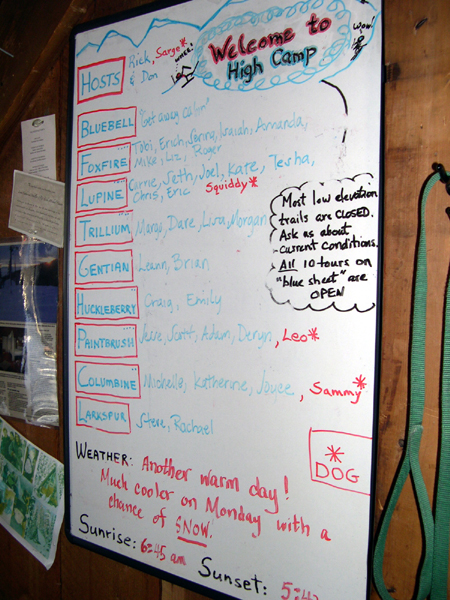 Welcome to
High Camp
WOW!
WHEE!
HOSTS Rick, Sarge*
& Don
BLUEBELL "Get away Cabin"
FOXFIRE Tobi, Erich, Sorina, Isaiah, Amanda,
Mike, Liz, Roger
LUPINE Currie, Seth, Joel, Kate, Tesha,
Chris, Eric Squiddy*
TRILLIUM Margo, Dare, Lisa, Morgan
GENTIAN Leann, Brian
HUCKLEBERRY Craig, Emily
PAINTBRUSH Jesse, Scott, Adam, Deryn, Leo*
COLUMBINE Michelle, Katherine, Joyce, Sammy*
LARKSPUR Steve, Rachael
Most low elevation
trails are CLOSED.
Ask us about
current conditions.
All 10 tours on
"blue sheet" are
OPEN
* DOG
WEATHER: Another warm day!
Much cooler on Monday with a
chance of SNOW.
Sunrise: 6:45 am
Sunset: